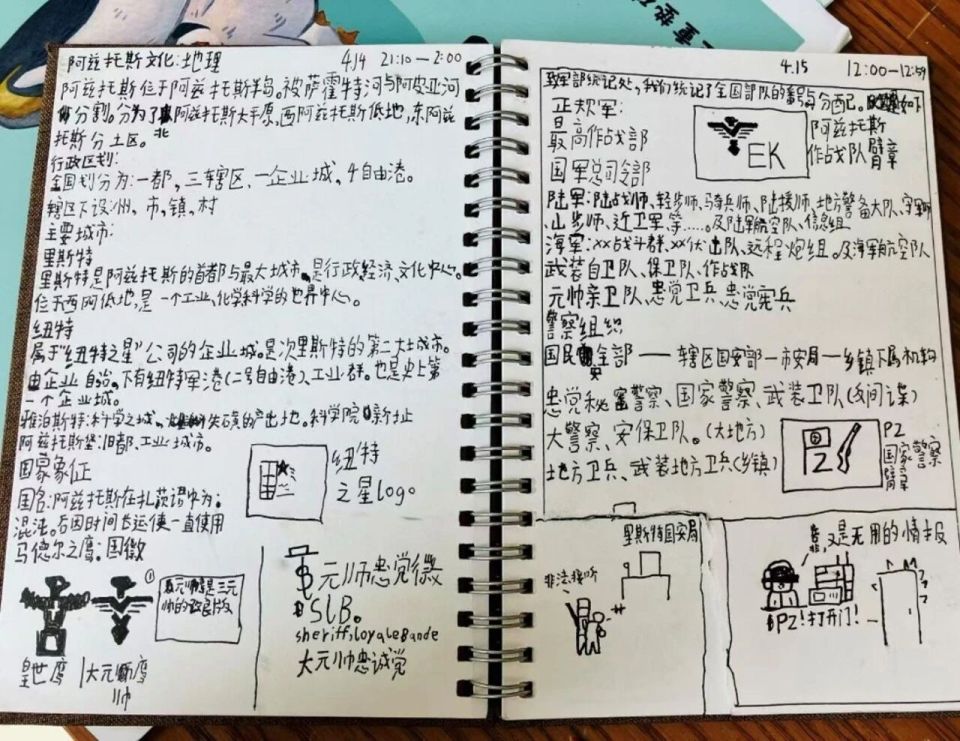 阿兹托斯文化:地理 4.14 21:10—2:00
阿兹托斯位于阿兹托斯半岛。被萨霍特河与阿皮亚河
分割。分为了阿兹托斯大平原,西阿兹托斯低地,东阿兹
托斯北分土区。
行政区划:
全国划分为:一都,三辖区、一企业城,4自由港。
辖区下设州、市、镇、村
主要城市:
里斯特
里斯特是阿兹托斯的首都与最大城市。是行政经济、文化中心。
位于西阿低地,是一个工业、化学科学的世界中心。
纽特
属于“纽特之星”公司的企业城。是次里斯特的第二大城市。
由企业自治。下有纽特军港(二号自由港)、工业群。也是史上第
一个企业城。
雅泊斯特:科学之城、失石璜的产出地。科学院新址
阿兹托斯堡:旧都、工业城市。
国家象征
国名:阿兹托斯在扎萩谬中为:
混沌。后因时间长远便一直使用
马德尔之鹰:国徽
纽特
之星logo
皇世鹰
大元帅鹰
①
大元帅鹰是三元
帅的改良版
元帅忠党徽
SLB。
sheriff,loyalebande
大元帅忠诚党
4.15 12:00—12:59
致军部统记处,我们统记了全国部队的番号与分配记。如下
正规军:
最高作战部
国军总司令部
EK
阿兹托斯
作战队臂章
陆军:陆战师、轻步师、骑兵师、陆援师、地方警备大队、守军师
、山步师、近卫军等……及陆军航空队、信息组
海军:xx战斗群、xx伏出队、远程炮组。及海军航空队
武装自卫队、保卫队、作战队
元帅亲卫队、忠党卫兵、忠党宪兵
警察组织
国民安全部——辖区国安部—市安局—乡镇下属机构
忠党秘密警察、国家警察、武装卫队(反间谍)
大警察、安保卫队。(大地方)
地方卫兵、武装地方卫兵(乡镇)
PZ
PZ
国家警察
臂章
里斯特国安局
非法接听
又是无用的情报
PZ!打开门!